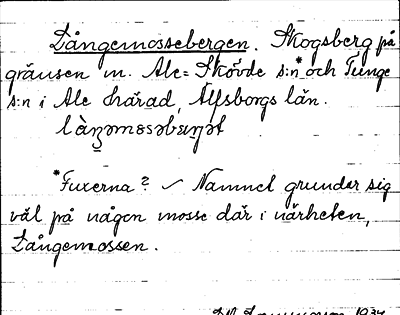 Långemossebergen. Skogsberg på
gränsen m. Ale-Skövde s:n* och Tunge
s:n i Ale härad, Älfsborgs län.
*Fuxerna? ✓ Namnet grundar sig
väl på någon mosse där i närheten,
Långemossen.
1934